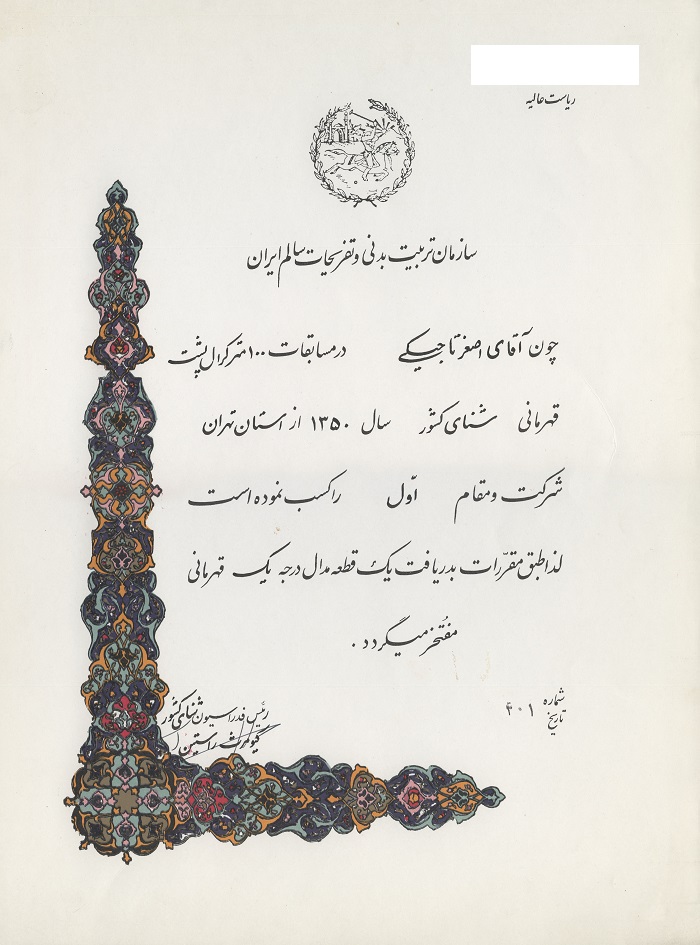 ریاست عالیه
سازمان تربیت بدنی و تفریحات سالم ایران
چون آقای اصغر تاجیکی در مسابقات ۱۰۰ متر کرال پشت
قهرمانی شنای کشور سال ۱۳۵۰ از استان تهران
شرکت و مقام اوّل را کسب نموده است
لذا طبق مقرّرات بدریافت یک قطعه مدال درجه یک قهرمانی
مفتخر میگردد .
شماره ۴۰۱
تاریخ
رئیس فدراسیون شنای کشور
کیومرث راستین